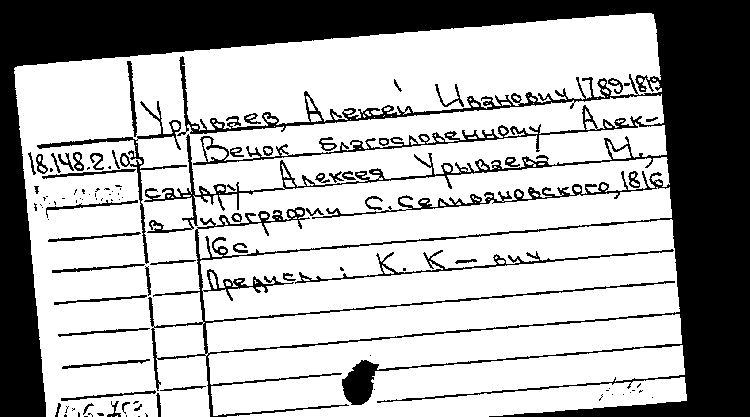 Урываев, Алексей Иванович, 1789-1819
18.148.2.103
Венок благословенному Алек-
сандру. Алексея Урываева. М.,
в типографии С. Селивановского, 1816.
16 с.
Предисл.: К. К — вич.